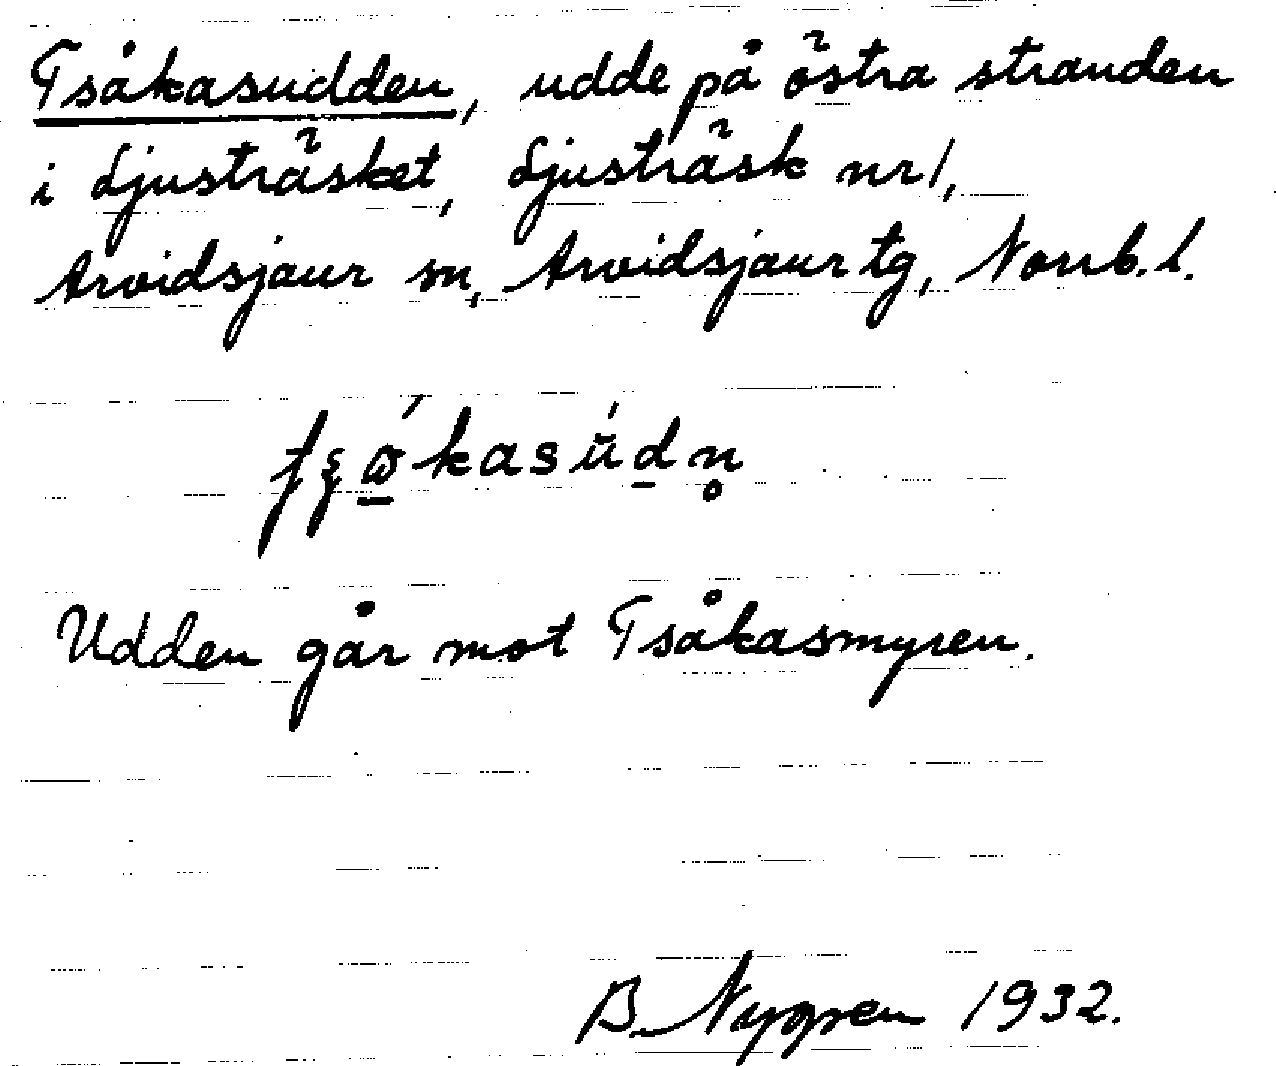 Tsåkasudden, udde på östra stranden
i Ljusträsket, Ljusträsk nr 1,
Arvidsjaur sn, Arvidsjaur tg, Norrb. l.
Udden går mot Tsåkasmyren.
B. Nygren 1932.